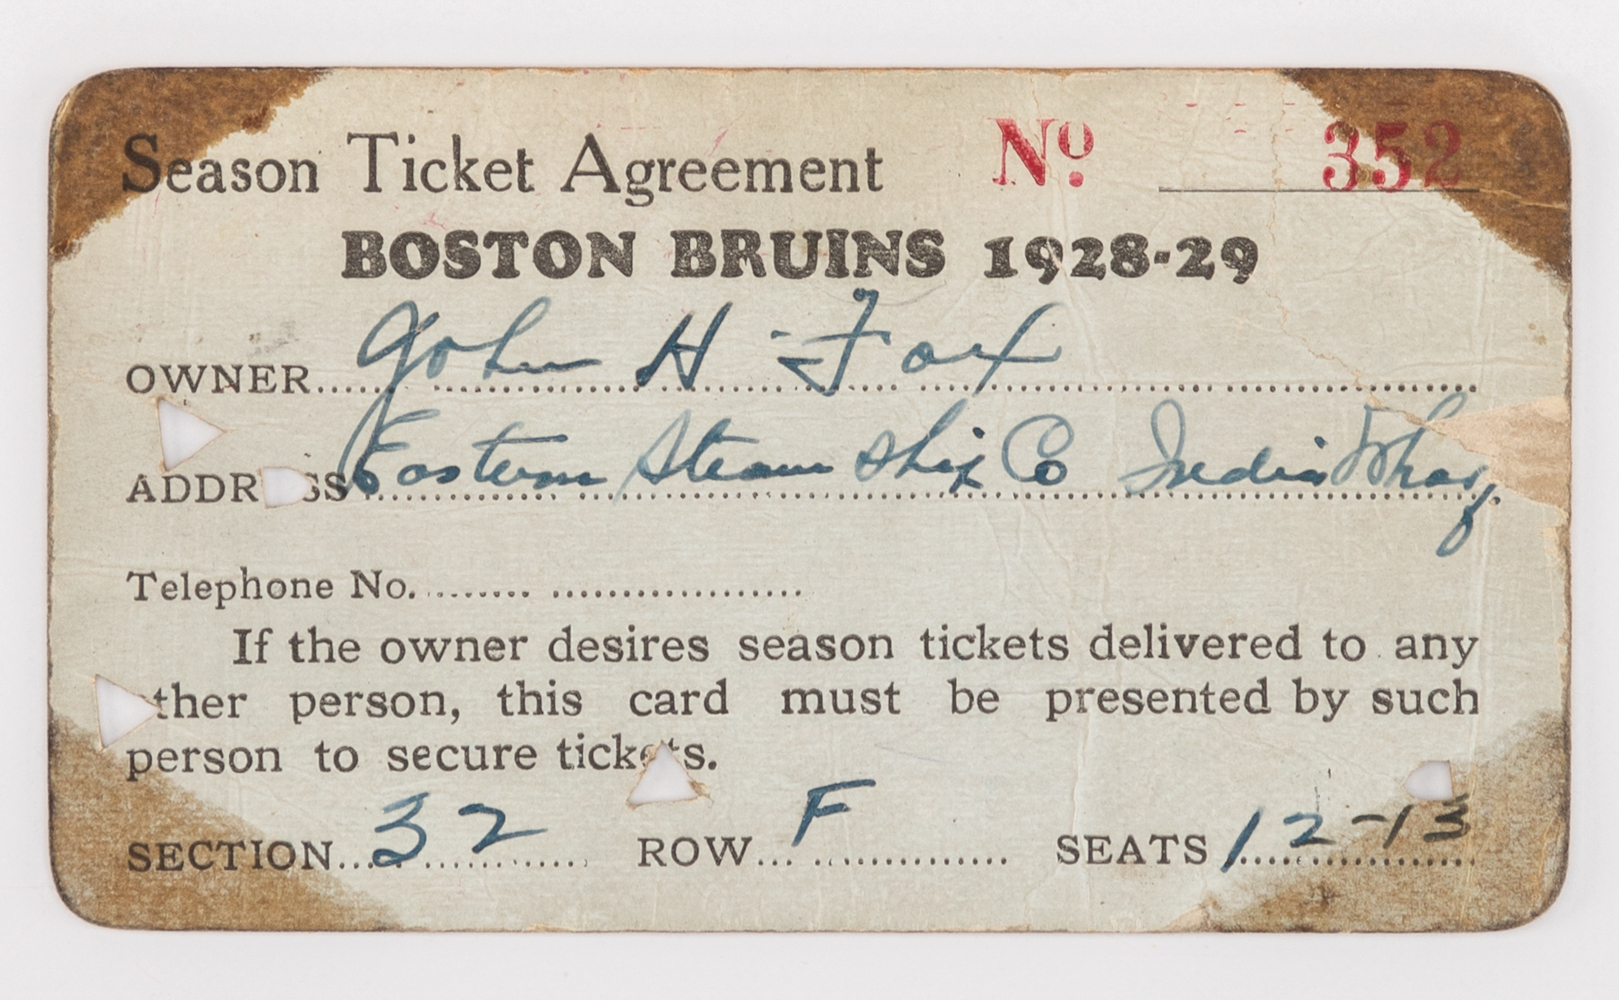 Season Ticket Agreement Nº 352
BOSTON BRUINS 1928-29
OWNER John H Fox
ADDR SS Eastern Steam Ship Co India Wharf
Telephone No.
If the owner desires season tickets delivered to any
ther person, this card must be presented by such
person to secure tickets.
SECTION 32 ROW F SEATS 12-13